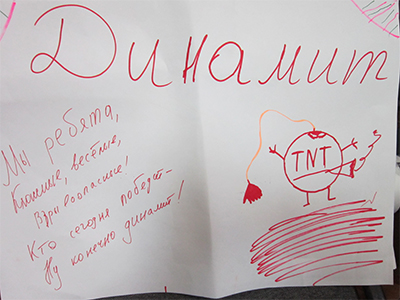 Динамит
Мы ребята,
весёлые,
Взрывоопасные!
Кто сегодня победит -
Ну конечно динамит!
TNT